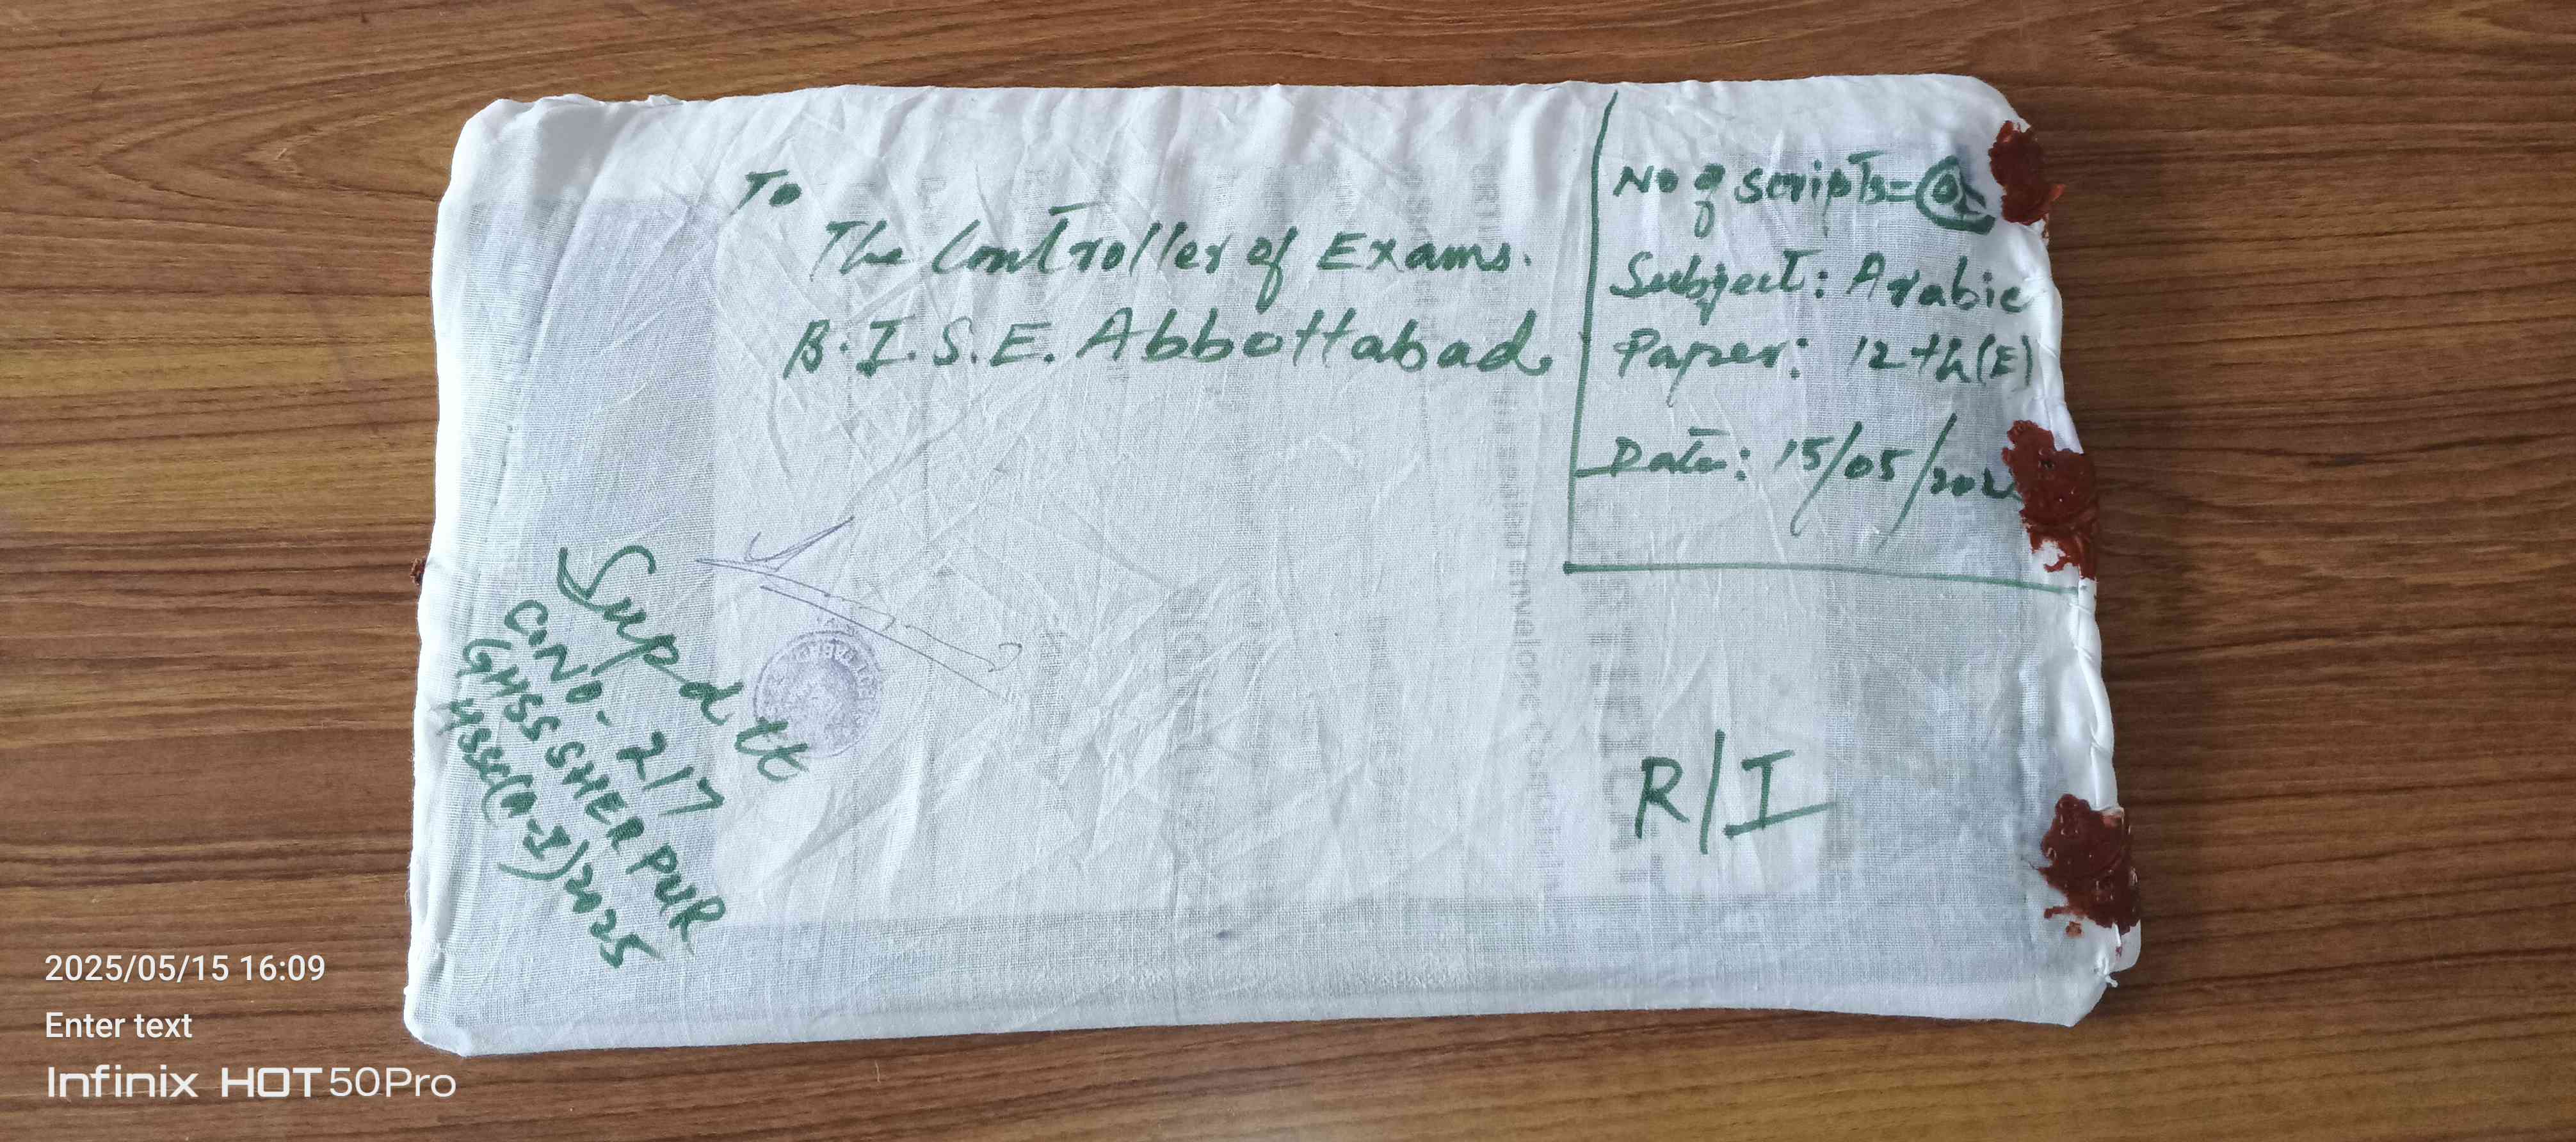 To
The Controller of Exams.
B.I.S.E. Abbottabad.
No of scripts=
Subject: Arabic
Paper: 12th(E)
Date: 15/05/202
Supdtt
C.NO- 217
GHSS SHERPUR
HSSC(A-I)2025
R/I
2025/05/15 16:09
Enter text
Infinix HOT50Pro